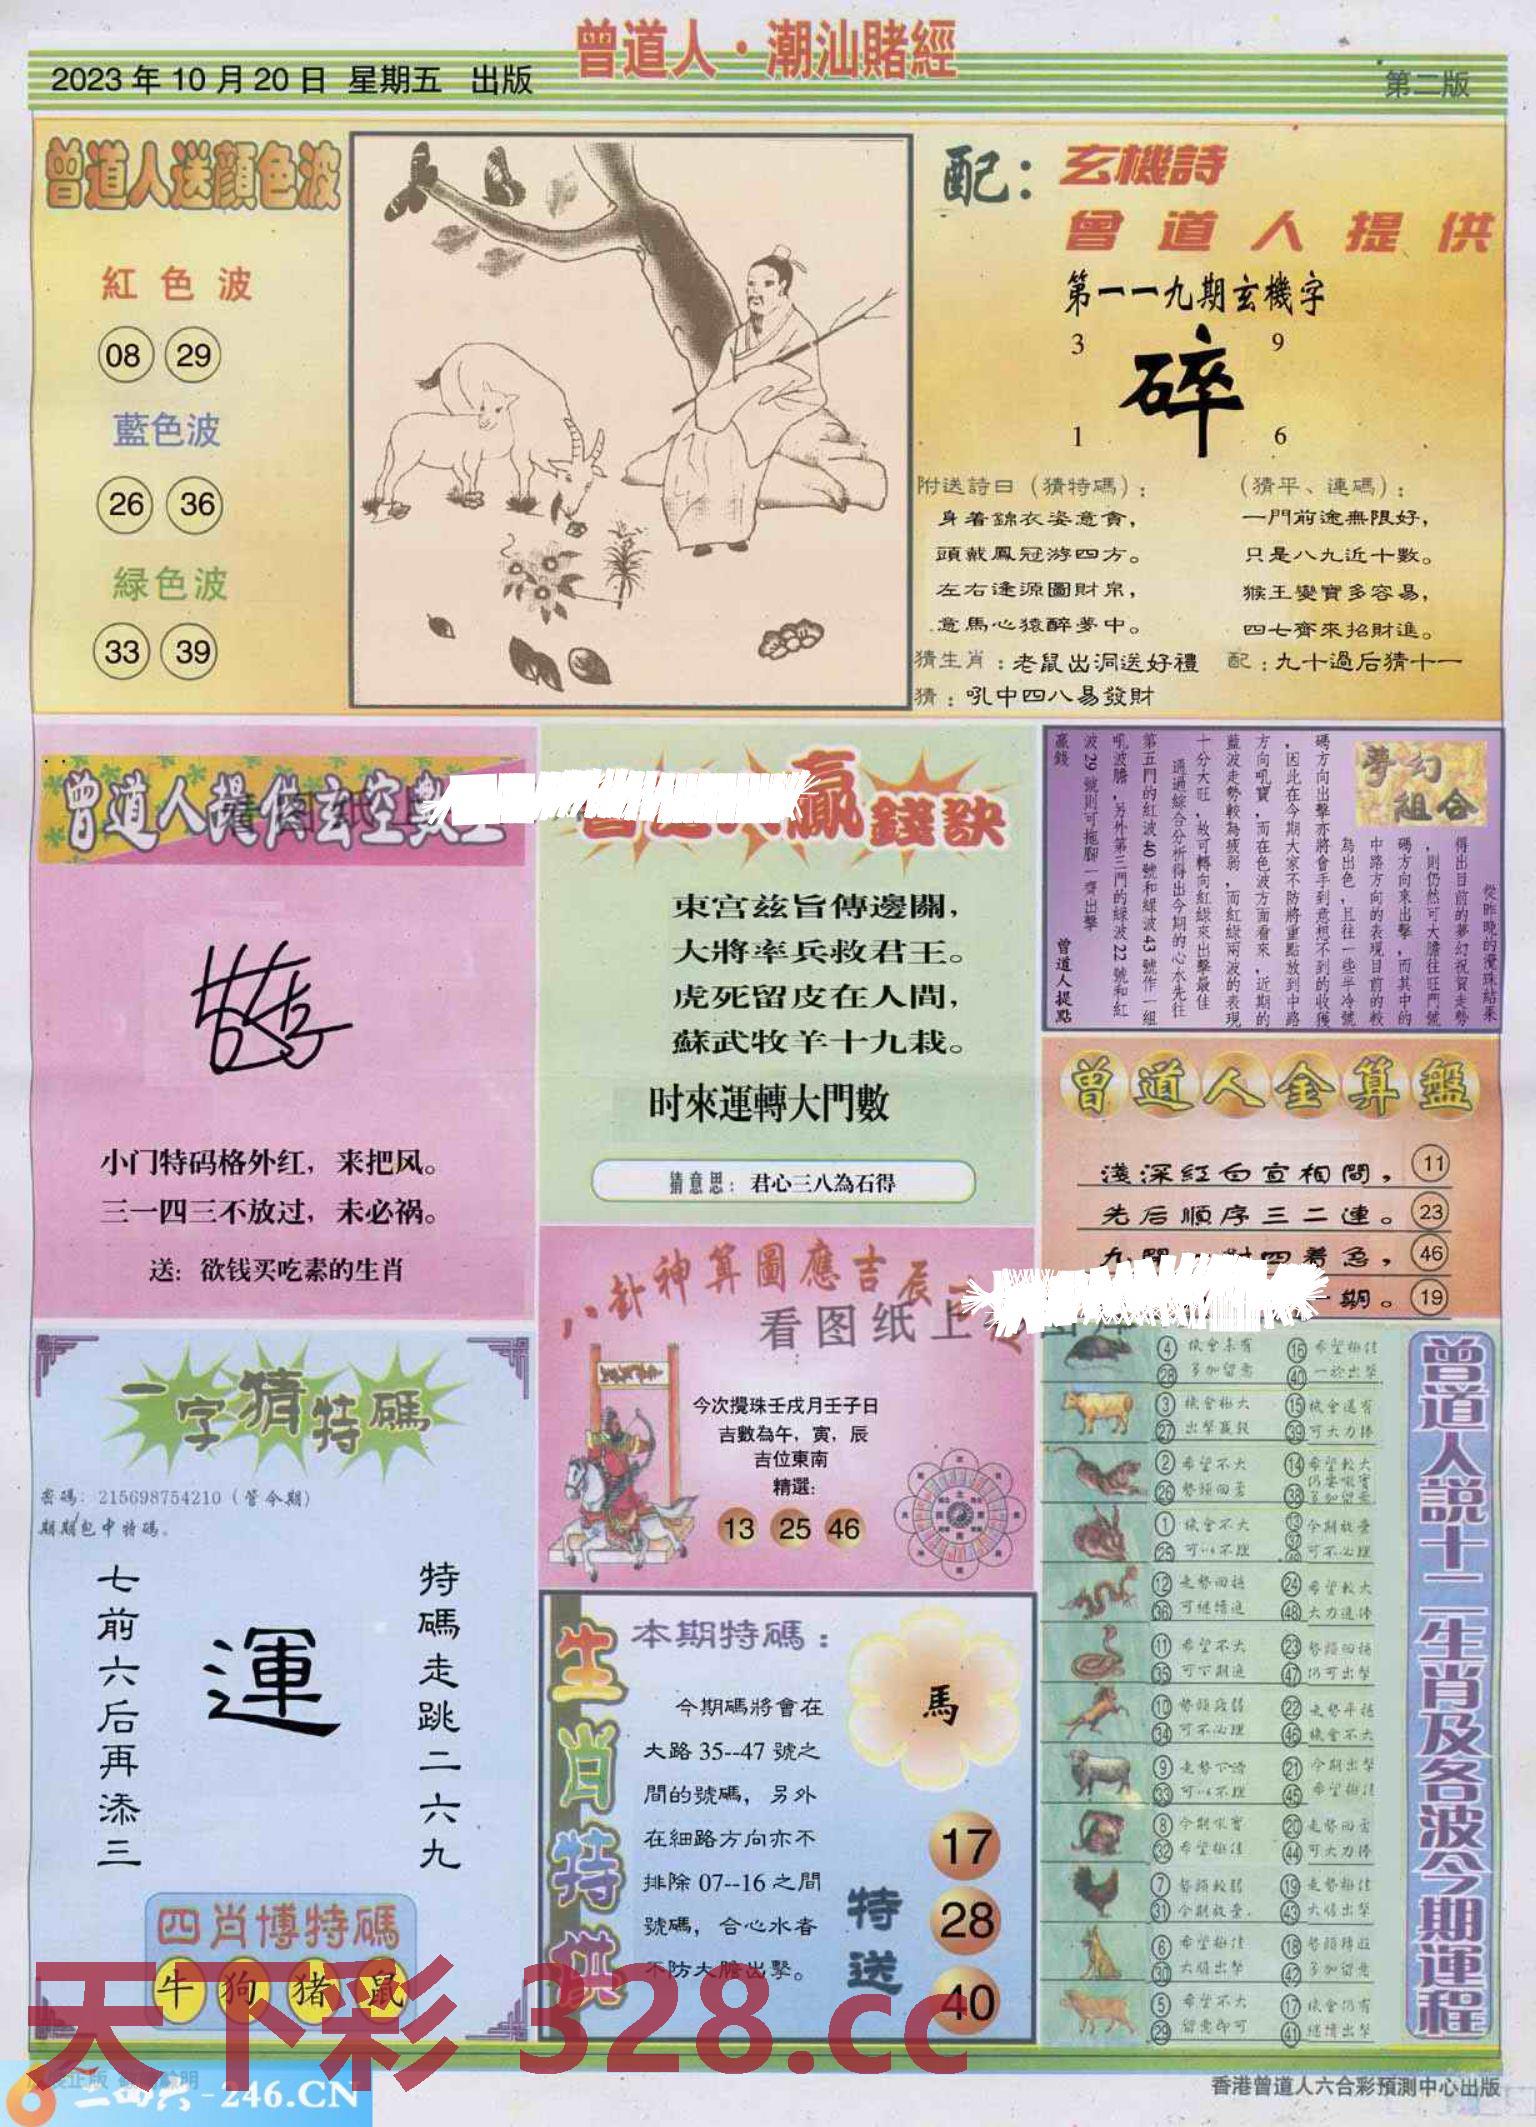 曾道人·潮汕賭經
2023年10月20日 星期五 出版
第二版
曾道人送顔色波
紅色波
08 29
藍色波
26 36
緑色波
33 39
配：玄機詩
曾道人提供
第一一九期玄機字
3 9
碎
1 6
附送詩曰（猜特碼）：
身着錦衣姿意貪，
頭戴鳳冠游四方。
左右逢源圖財帛，
意馬心猿醉夢中。
（猜平、連碼）：
一門前途無限好，
只是八九近十數。
猴王變寶多容易，
四七齊來招財進。
猜生肖：老鼠出洞送好禮
配：九十過后猜十一
猜：吼中四八易發財
曾道人提供玄空數
小门特码格外红，来把风。
三一四三不放过，未必祸。
送：欲钱买吃素的生肖
贏錢訣
東宫兹旨傳邊關，
大將率兵救君王。
虎死留皮在人間，
蘇武牧羊十九栽。
时來運轉大門數
猜意思：君心三八為石得
夢幻組合
從昨晚的攪珠結果
得出目前的夢幻祝賀走勢
，則仍然可大膽往旺門號
碼方向來出擊，而其中的
中路方向的表現目前的較
為出色，且往一些半冷號
碼方向出擊亦將會手到意想不到的收獲
，因此在今期大家不防將重點放到中路
方向吼寶，而在色波方面看來，近期的
藍波走勢較為疲弱，而紅緑兩波的表現
十分大旺，故可轉向紅緑來出擊最佳
通過綜合分析得出今期的心水先往
第五門的紅波40號和緑波43號作一組
吼波膽，另外第三門的緑波22號和紅
波29號則可拖脚一齊出擊
贏錢
曾道人提點
曾道人金算盤
淺深紅白宣相間， 11
先后順序三二連。 23
四着急， 46
期。 19
八卦神算圖應吉辰
看图纸上
今次攪珠壬戌月壬子日
吉數為午，寅，辰
吉位東南
精選：
13 25 46
一字猜特碼
密碼：215698754210（管今期）
期期包中特碼。
特碼走跳二六九
運
七前六后再添三
四肖博特碼
牛 狗 猪 鼠
生肖特供
本期特碼：
馬
今期碼將會在
大路35--47號之
間的號碼，另外
在細路方向亦不
排除07--16之間
號碼，合心水者
不防大膽出擊。
特送
17
28
40
曾道人説十二生肖及各波今期運程
4 機會未有
28 多加留意
16 希望極佳
40 一於出擊
3 機會極大
27 出擊贏錢
15 機會還有
39 可大力捧
2 希望不大
26
14 希望較大
38
1 機會不大
25
今期放棄
12
36 可繼續進
24 希望較大
48 大力進捧
11 希望不大
35
23
47 仍可出擊
10
34
22
46 機會不大
9
33
21 今期出擊
45 希望極佳
8 今期吼寶
32 希望極佳
20
44 可大力捧
7
31 今期放棄.
19
43 大膽出擊
6 希望極佳
30 大膽出擊
18
42 多加留意
5 希望不大
29 留意即可
17 機會仍有
41 繼續出擊
天下彩 328.cc
二四六-246.CN
香港曾道人六合彩預測中心出版